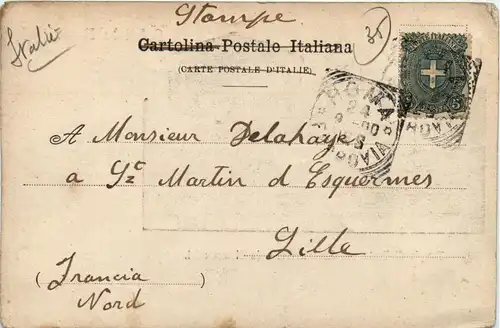 Stampe
35
Italie
Cartolina Postale Italiana
(CARTE POSTALE D'ITALIE)
ROMA
FERROVIA
24
9-00
8 S
A Monsieur Delahaye
a St Martin d Esquermes
Lille
(Francia
Nord)